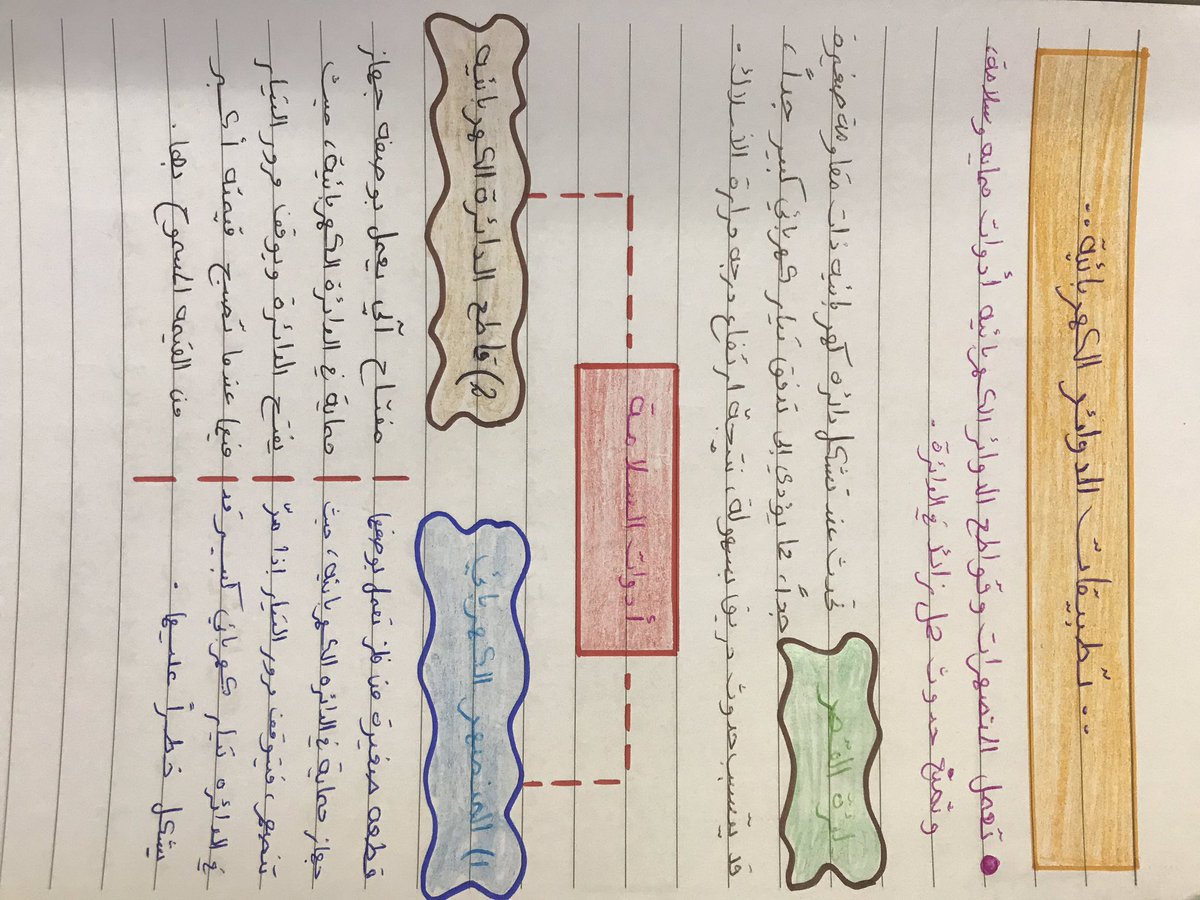 .. تطبيقات الدوائر الكهربائية ..
تعمل المنصهرات وقواطع الدوائر الكهربائيه أدوات حمايه وسلامة،
وتمنع حدوث حمل زائد في الدائرة .
دائرة القصر
تحدث عند تشكل دائره كهربائيه ذات مقاومة صغيره
جداً، مما يؤدي إلى تدفق تيار كهربائي كبير جداً،
قد يتسبب حدوث حريق بسهولة، نتيجة ارتفاع درجه حرارة الأسلاك .
أدوات السلامة
١) المنصهر الكهربائي
قطعه صغيرة من فلز تعمل بوصفها
جهاز حماية في الدائره الكهربائيه، حيث
تنصهر، فيتوقف مرور التيار إذا مرّ
في الدائره تيار كهربائي كبير قد
يشكل خطراً عليها .
٢) قاطع الدائرة الكهربائيه
مفتاح آلي يعمل بوصفه جهاز
حماية في الدائرة الكهربائية، حيث
يفتح الدائرة ويوقف مرور التيار
فيها عندما تصبح قيمته أكبر
من القيمه المسموح بها .